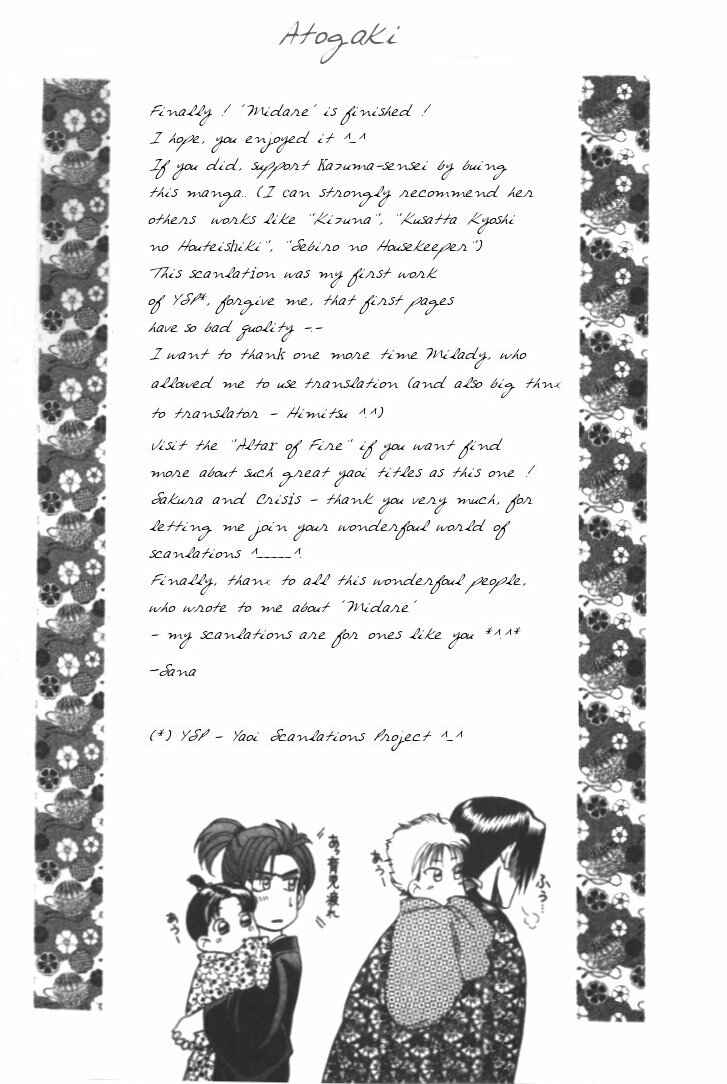 Atogaki
Finally ! 'Midare' is finished !
I hope, you enjoyed it ^_^
If you did, support Kazuma-sensei by buing
this manga.. (I can strongly recommend her
others works like "Kizuna", "Kusatta Kyoshi
no Houteishiki", "Sebiro no Housekeeper")
This scanlation was my first work
of YSP*, forgive me, that first pages
have so bad quolity -.-
I want to thank one more time Milady, who
allowed me to use translation (and also big thnx
to translator - Himitsu ^.^)
Visit the "Altar of Fire" if you want find
more about such great yaoi titles as this one !
Sakura and Crisis - thank you very much, for
letting me join your wonderfoul world of
scanlations ^_____^.
Finally, thanx to all this wonderfoul people,
who wrote to me about 'Midare'
- my scanlations are for ones like you *^.^*
-Sana
(*) YSP - Yaoi Scanlations Project ^_^
あ。育児疲れ
あうー
あぅー
ふぅ…